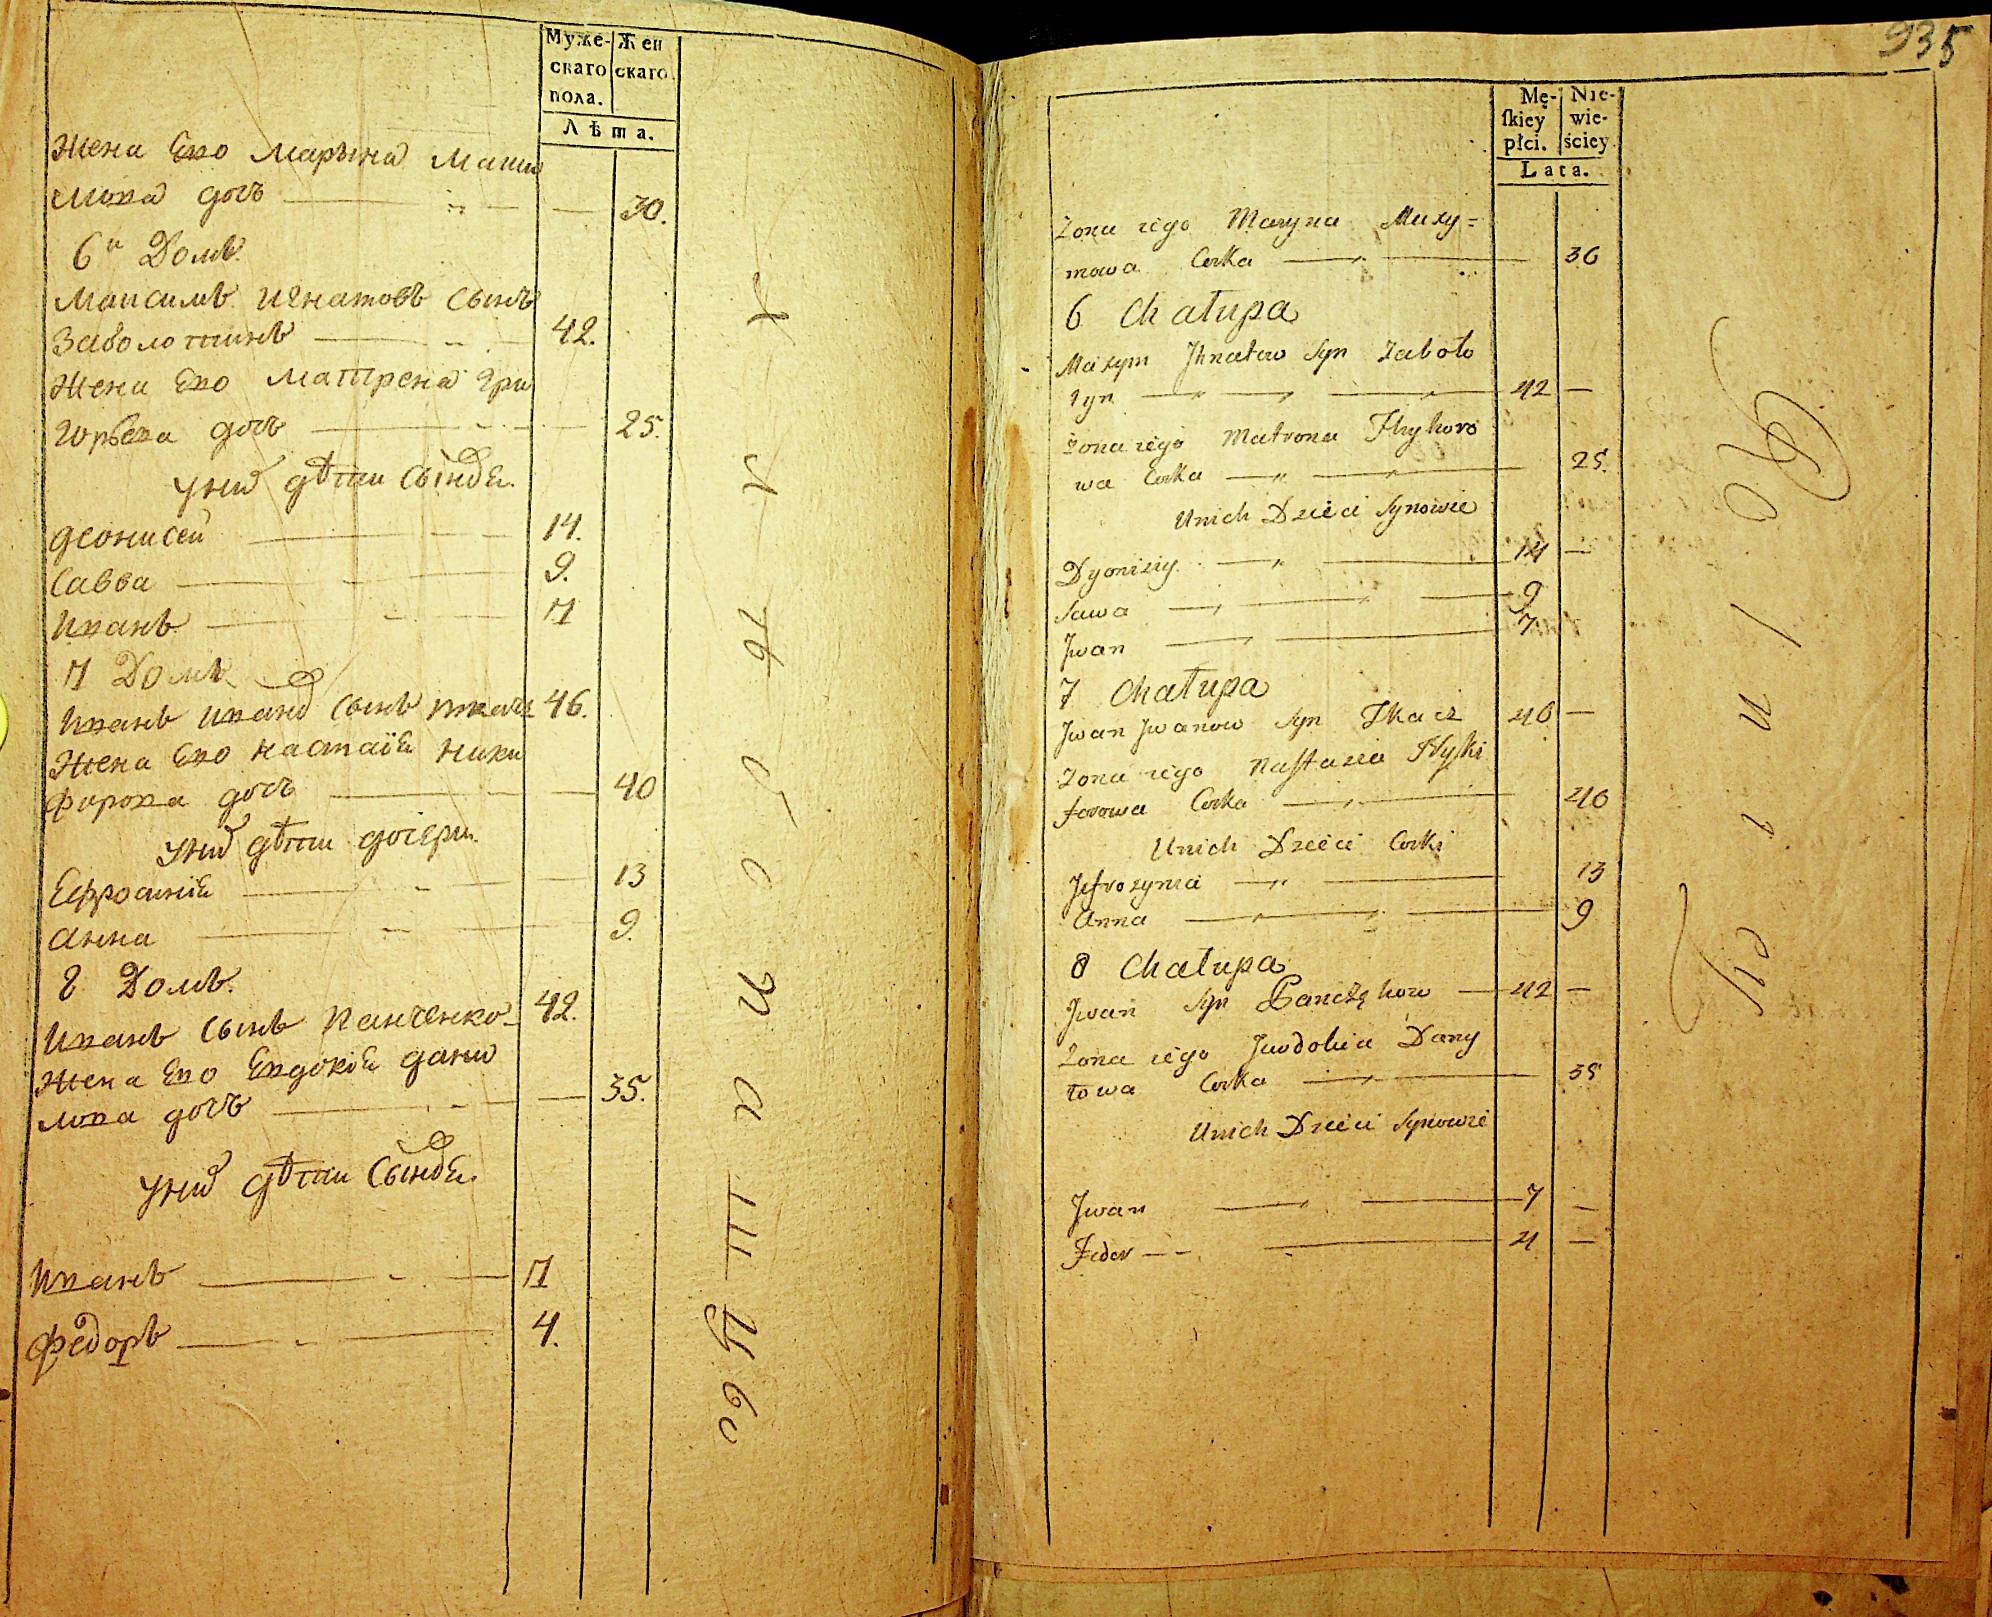 Муже-
скаго
пола.
Жен
скаго.
Лѣта.
Жена Ево Марына Макси
мова дочъ 30.
6й Домъ.
Максимъ Игнатовъ Сынъ
Заболотинъ 42.
Жена Ево Матрена Гри
горьева дочъ 25.
У них дѣти Сыновья.
Деонисей 14.
Савва 9.
Иванъ 7
7 Домъ
Иванъ Иванов Сынъ Ткачъ 46.
Жена Ево Настасія Ники
форова дочъ 40
У них дѣти дочери.
Ефросинія 13
Анна 9.
8 Домъ.
Иванъ Сынъ Панченко 42.
Жена Ево Евдокія Дани
лова дочъ 35.
У них дѣти Сыновья.
Иванъ 7
Федоръ 4.
935
Mę-
skiey
płci.
Nie-
wie-
ściey
Lata.
Żona iego Maryna Maxy=
mowa Corka 30
6 Chałupa
Maxym Ihnatow Syn Zaboło
tyn 42 —
Żona iego Matrona Hryhoro
wa Corka 25.
U nich Dzieci Synowie
Dyonizy 14 —
Sawa 9
Jwan 7
7 Chałupa
Jwan Jwanow Syn Tkacz 46 —
Żona iego Nastazia Nyki
forowa Corka 40
U nich Dzieci Corki
Jefrozynia 13
Anna 9
8 Chałupa
Jwan Syn Panczękow 42 —
Żona iego Jwdokia Dany
łowa Corka 35
U nich Dzieci Synowie
Jwan 7 —
Fedor 4 —